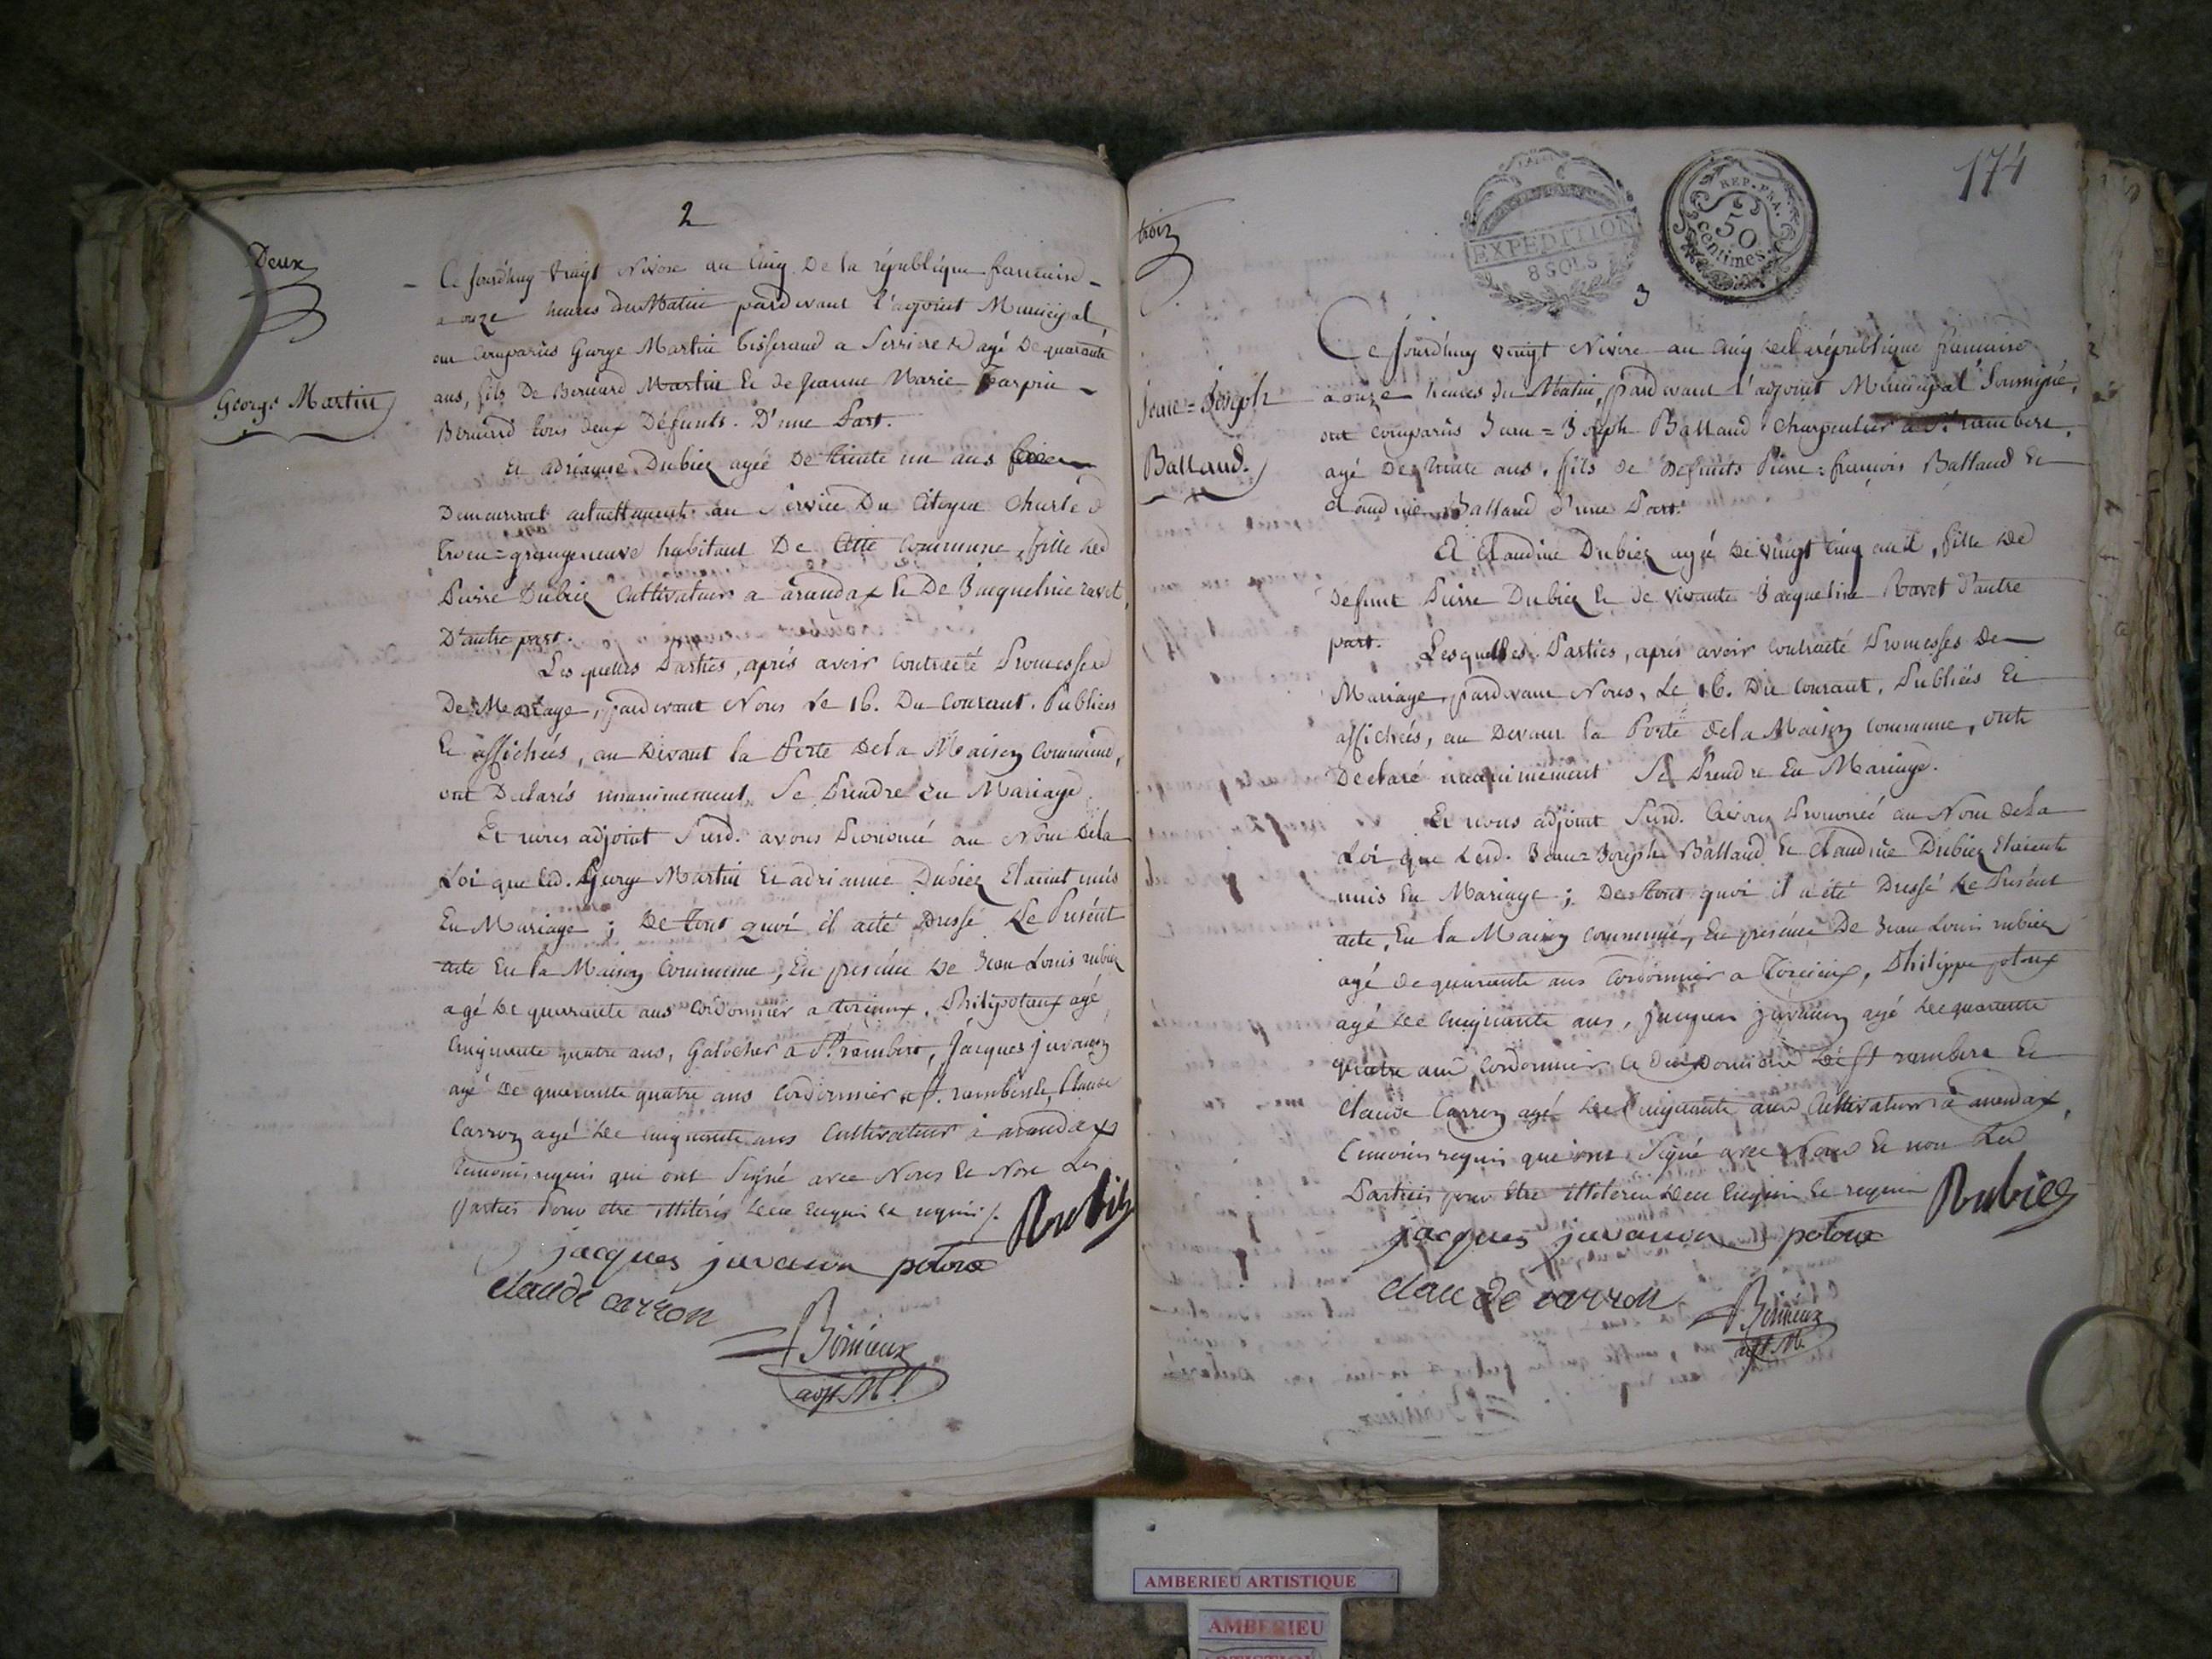 2
Deux
Ce Jourd'huy vingt Nivose an Cinq De la république francaise
a onze heures du Matin pardevant l'agoint Municipal
ont Comparus George Martin tisserand a Serriere agé De quarante
George Martin
ans, fils De Bernard Martin Et de Jeanne Marie
Bernard tous deux Défunts. D'une Part.
Et adrianne Dubiez agée De trente un ans
Demeurant actuellement au Service Du Citoyen Charle
grangeneuve habitant De Cette Commune, fille de
Pierre Dubiez Cultivateur a arandax Et De Jacqueline ravet,
D'autre part.
Les quelles Parties, aprés avoir Contracté Promesses
De Mariage, pardevant Nous Le 16. Du Courant. Publiées
Et affichées, au Devant la Porte Dela Maison Commune,
ont Declarés unanimement Se Prendre En Mariage
Et nous adjoint Susd. avons Prononcé au Nom Dela
Loi que led. George Martin Et adrianne Dubiez Etaint unis
En Mariage ; De tout quoi il aété Dressé Le Présent
acte En la Maison Commune, En présence De Jean Louis rubiez
agé De quarante ans Cordonnier a torcieux, Philipotoux agé
Cinquante quatre ans, Galocher a St. rambert, Jacques juvanon
agé De quarante quatre ans Cordonnier a St. rambert, Claude
Carron agé De Cinquante ans Cultivateur à arandax
temoins requis qui ont Signé avec Nous Et Non Les
Parties Pour etre illiterés De ce Enquis Et requis /.
Rubiez
jacques juvanon potoux
claude carron
Bonieux
adjt. Ml.
174
troix
EXPEDITION
8 SOLS
REP. FRA.
50
centimes
3
Ce Jourd'huy vingt Nivose an Cinq dela république francaise
Jean=Joseph
a onze heures du Matin, pardevant l'adjoint Municipal Soussigné,
ont Comparus Jean=Joseph Balland Charpentier a St. rambert,
Balland.
agé De trente ans, fils de Defunts Pierre=françois Balland Et
Claudine Balland d'une Part.
Et Claudine Dubiez agée De vingt Cinq ans, fille De
défunt Pierre Dubiez Et de vivante Jacqueline Ravet D'autre
part. Lesquelles Parties, aprés avoir Contracté Promesses De
Mariage, pardevant Nous, Le 16. Du Courant, Publiées Et
affichées, au Devant la Porte dela Maison Commune, ont
Declaré unanimement Se Prendre En Mariage.
Et nous adjoint Susd. avons Prononcé au Nom Dela
Loi que Lesd. Jean=Joseph Balland Et Claudine Dubiez Etaient
unis En Mariage ; De tout quoi il a été Dressé Le Présent
acte, En la Maison Commune, En présence De Jean Louis rubiez
agé De quarante ans Cordonnier a Torcieux, Philippe potoux
agé De Cinquante ans, Jacques juvanon agé De quarante
quatre ans Cordonnier De St rambert Et
Claude Carron agé De Cinquante ans Cultivateur à arandax,
temoins requis qui ont Signé avec Nous Et non Les
Parties pour Etre illiterés De ce Enquis Et requis
Rubiez
jacques juvanon potoux
claude carron
Bonieux
adjt. M.
AMBERIEU ARTISTIQUE
AMBERIEU
ARTISTIQUE